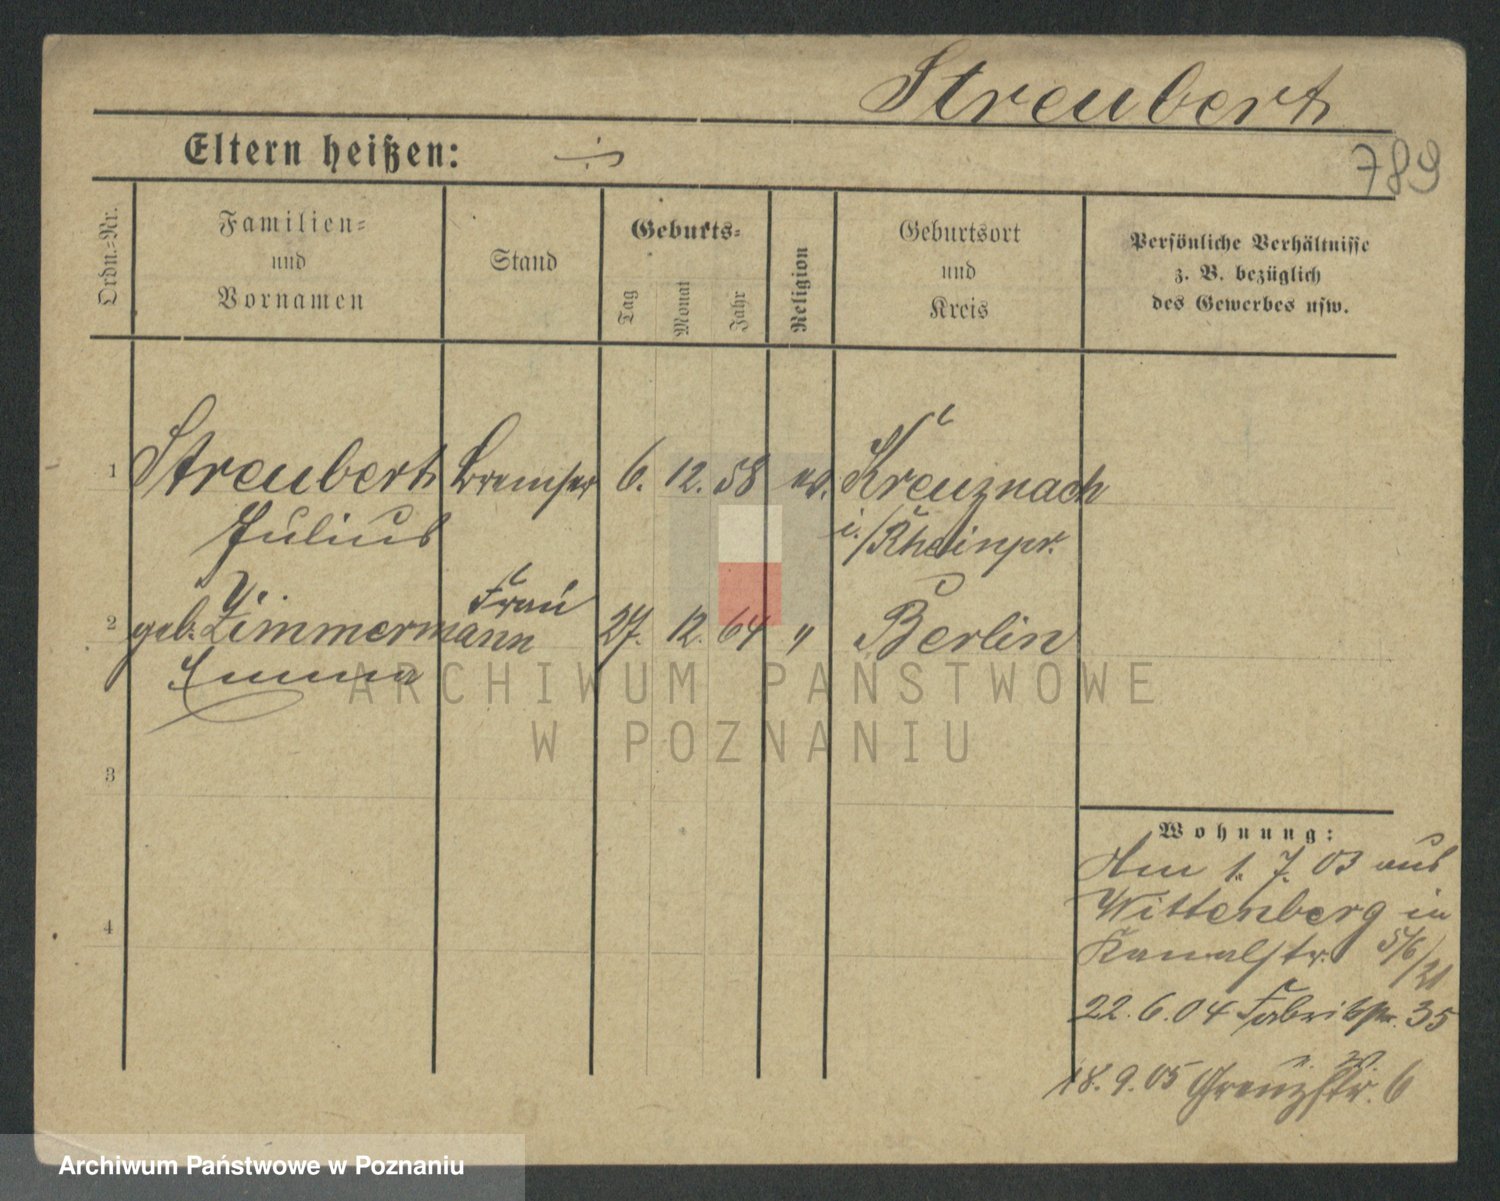 Streubert
789
Eltern heißen: ÷
Ordn.=Nr.
Familien=
und
Vornamen
Stand
Geburts=
Tag
Monat
Jahr
Religion
Geburtsort
und
Kreis
Persönliche Verhältnisse
z. B. bezüglich
des Gewerbes usw.
1 Streubert Bremser 6. 12. 58 ev. Kreuznach
Julius i./Rheinpr.
Frau
2 geb. Zimmermann 27. 12. 64 " Berlin
Emma
3
4
Wohnung:
Am 1. 7. 03 aus
Wittenberg in
Kanalstr. 5/6/21
22. 6. 04 Fabrikstr. 35
18. 9. 05 Grenzstr. 6
ARCHIWUM PAŃSTWOWE
W POZNANIU
Archiwum Państwowe w Poznaniu